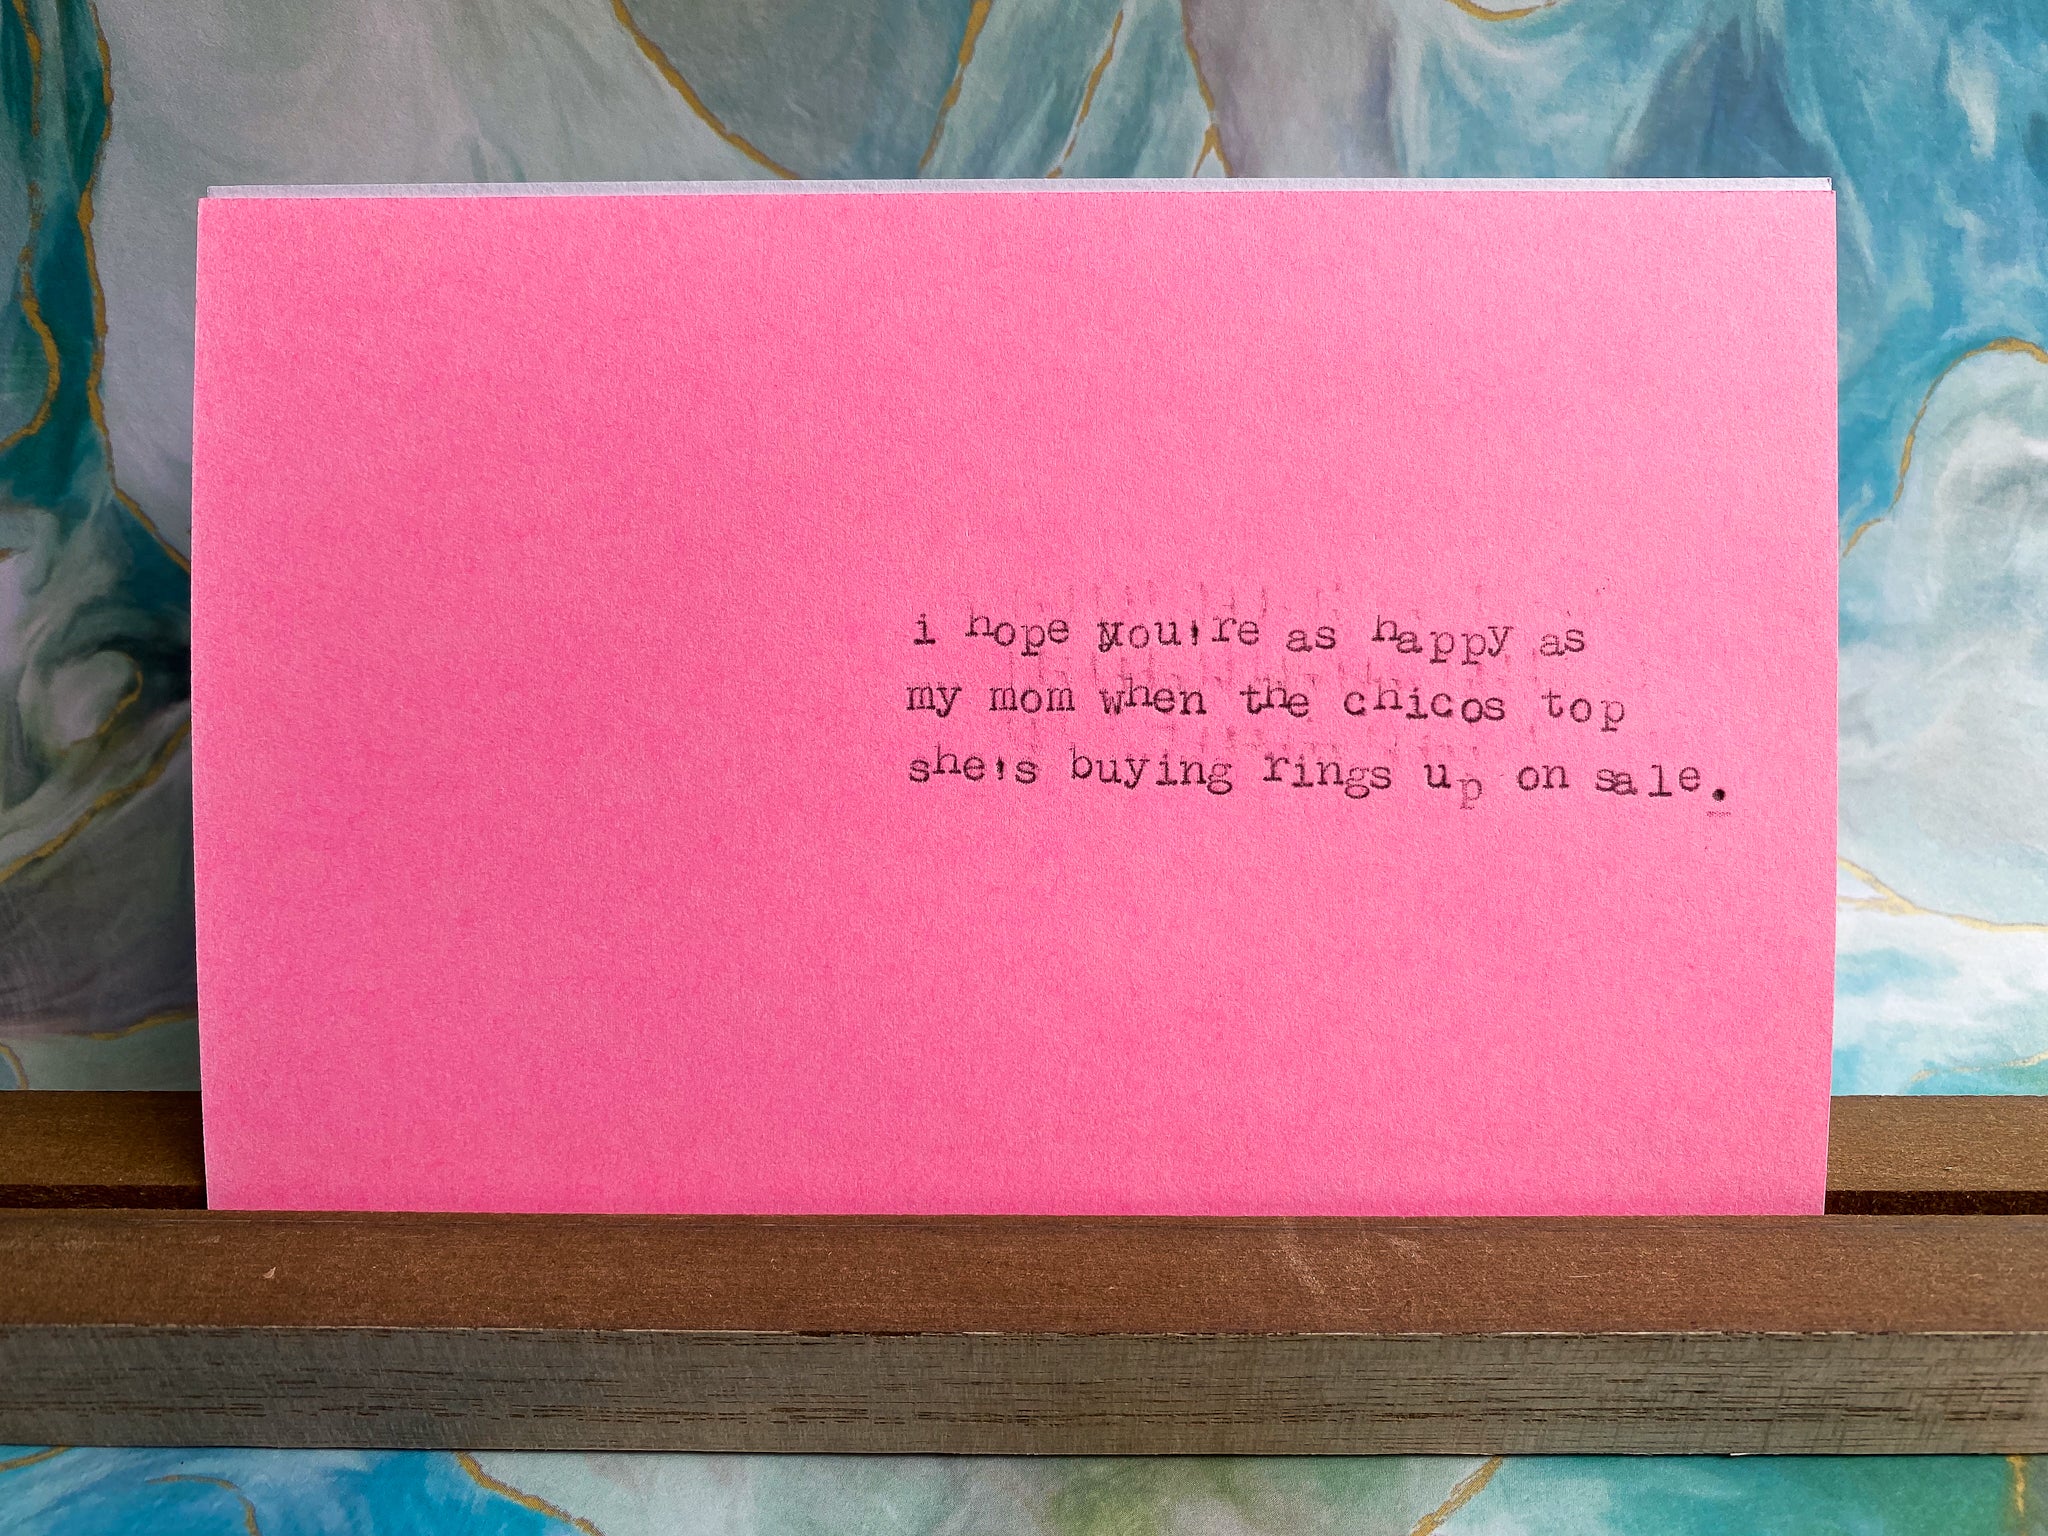 i hope you're as happy as
my mom when the chicos top
she's buying rings up on sale.